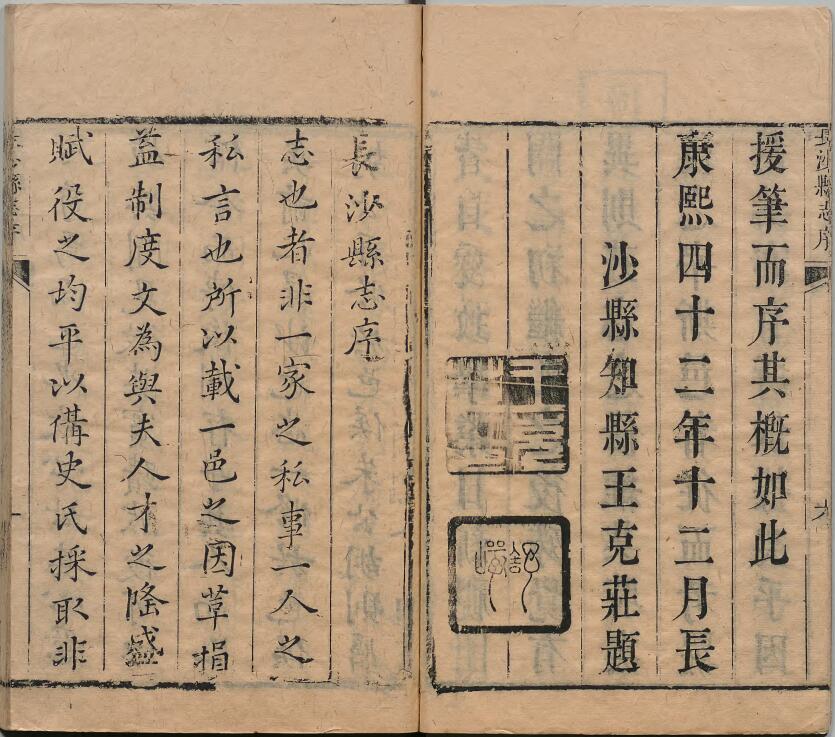 長沙縣志序
援筆而序其概如此
康熙四十二年十二月長
沙縣知縣王克莊題
長沙縣志序
志也者非一家之私事一人之
私言也所以載一邑之因革損
益制度文為與夫人才之隆盛
賦役之均平以備史氏採取非